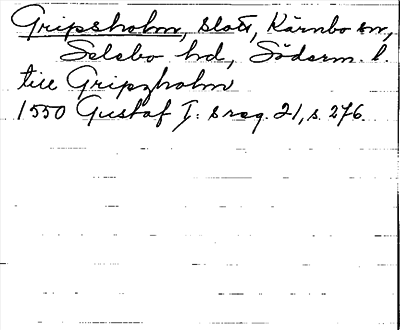 Gripsholm, slott, Kärnbo sn,
Selebo hd, Söderm. l.
till Gripzholm
1550 Gustaf I: s reg. 21, s. 276.